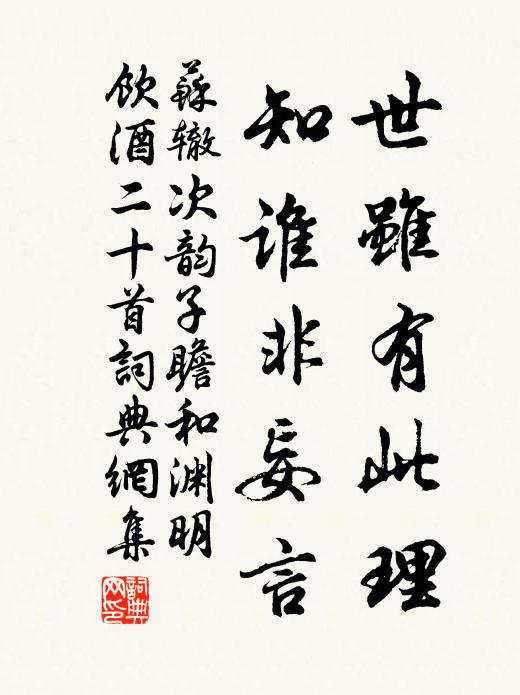 世雖有此理
知誰非妄言
蘇辙次韵子瞻和渊明
飲酒二十首詞典網集
詞典網印